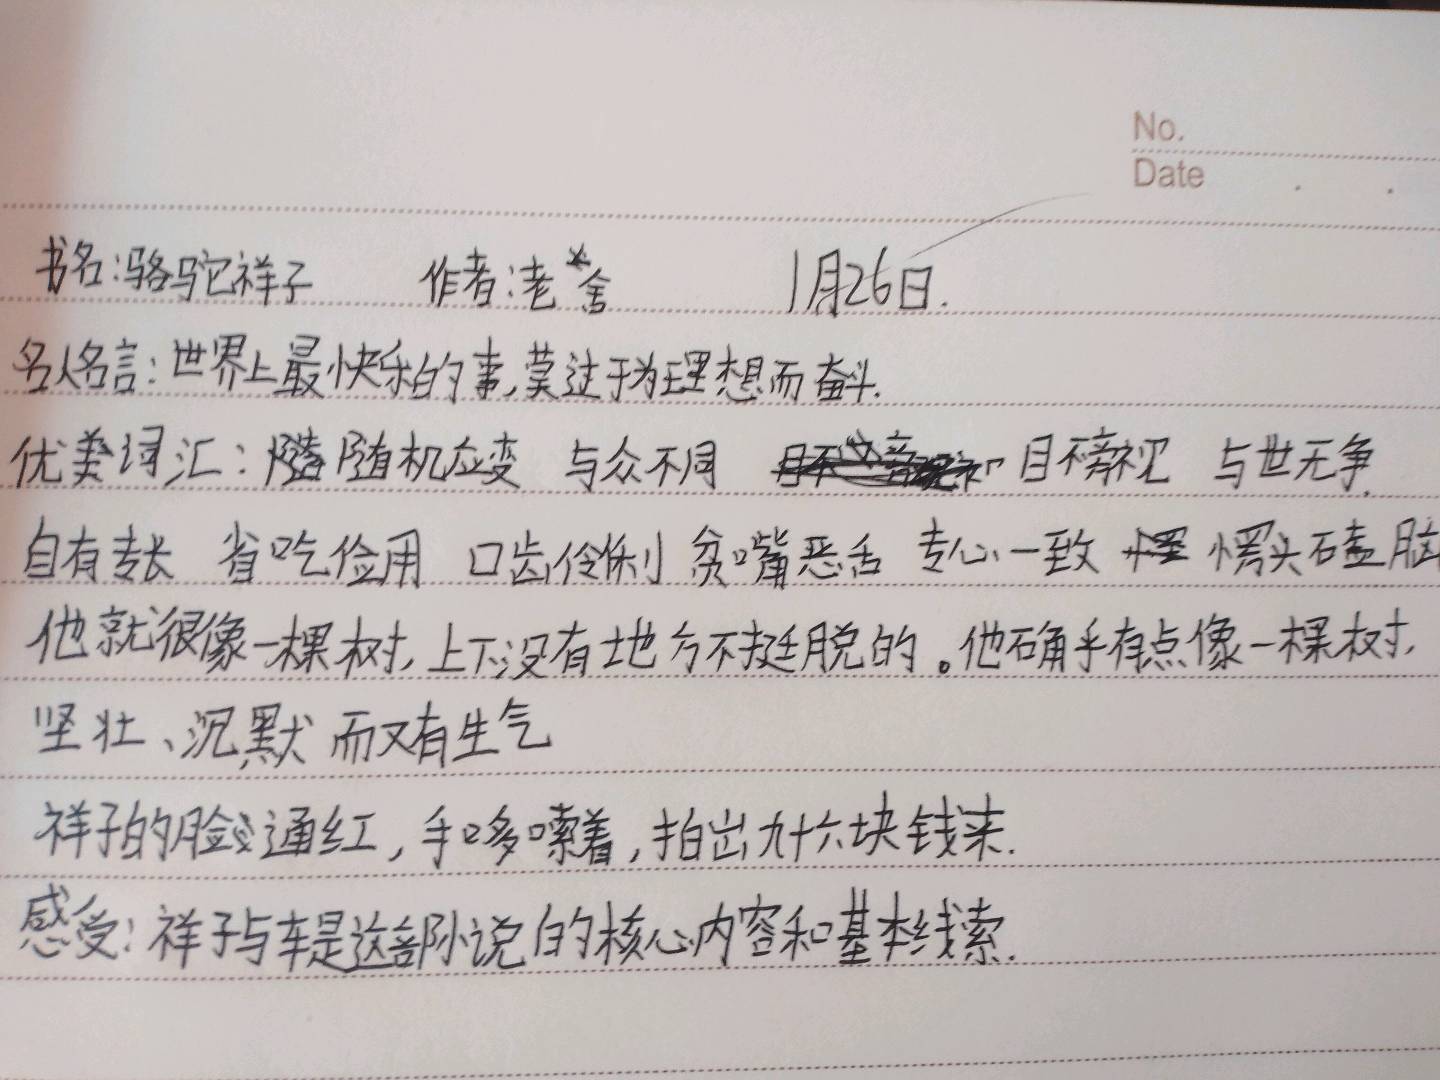 No.
Date . .
书名:骆驼祥子 作者:老舍 1月26日.
名人名言:世界上最快乐的事,莫过于为理想而奋斗.
优美词汇: 随机应变 与众不同 目不斜视 与世无争.
自有专长 省吃俭用 口齿伶俐 贫嘴恶舌 专心一致 愣头磕脑
他就很像一棵树,上下没有地方不挺脱的。他确乎有点像一棵树,
坚壮、沉默而又有生气
祥子的脸通红,手哆嗦着,拍出九十六块钱来.
感受:祥子与车是这部小说的核心内容和基本线索.